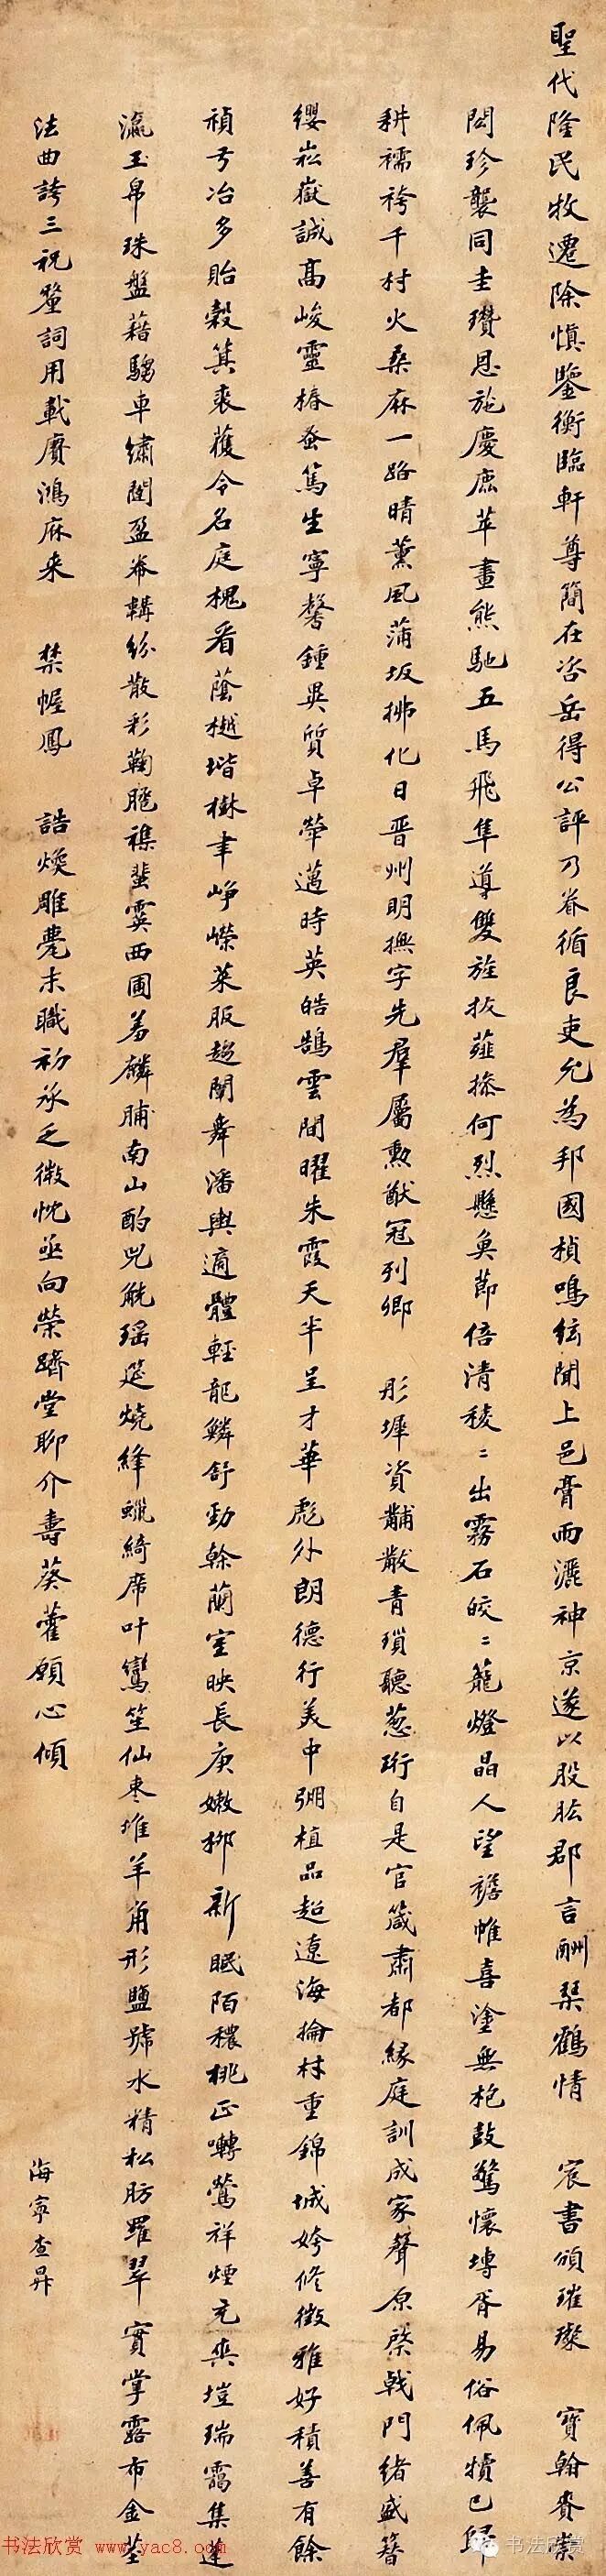 聖代隆民牧遷除慎鑒衡臨軒尊簡在咨岳得公評乃眷循良吏允為邦國楨鳴絃聞上邑膏雨灑神京遂以股肱郡言酬琹鶴情 宸書頒璀璨 寶翰賚崇
閎珍襲同圭瓚恩施慶鹿苹畫熊馳五馬飛隼導雙旌拔薤操何烈懸魚節倍清稜〻出霧石皎〻籠燈晶人望襜帷喜塗無枹鼓驚懷塼胥易俗佩犢已歸
耕襦袴千村火桑麻一路晴薰風蒲坂拂化日晋州明撫字先羣屬勲猷冠列卿 彤墀資黼黻青瑣聽葱珩自是官箴肅都緣庭訓成家聲原棨戟門緒盛簪
纓崧嶽誠高峻靈椿蚤篤生寧馨鍾異質卓犖邁時英皓鵠雲間曜朱霞天半呈才華彪外朗德行美中弸植品超遼海掄材重錦城姱修徵雅好積善有餘
禎弓冶多貽穀箕裘蔭令名庭槐看蔭樾堦樹聿崢嶸萊服趨闈舞潘輿適體輕龍鱗舒勁榦蘭室映長庚嫩柳新眠陌穠桃正囀鶯祥煙充奥塏瑞靄集蓬
瀛玉帛珠盤藉騶車繡閣盈希韝紛散彩鞠䐣襍蜚霙西圃羞麟脯南山酌兕觥瑶筵燒絳蠟綺席叶鸞笙仙棗堆羊角形鹽號水精松肪羅翠實掌露布金莖
法曲誇三祝釐詞用載賡鴻庥来 禁幄鳳 誥煥雕甍末職初承乏微忱亟向榮躋堂聊介壽葵藿願心傾
海寧查昇
书法欣赏 www.yac8.com
书法欣赏